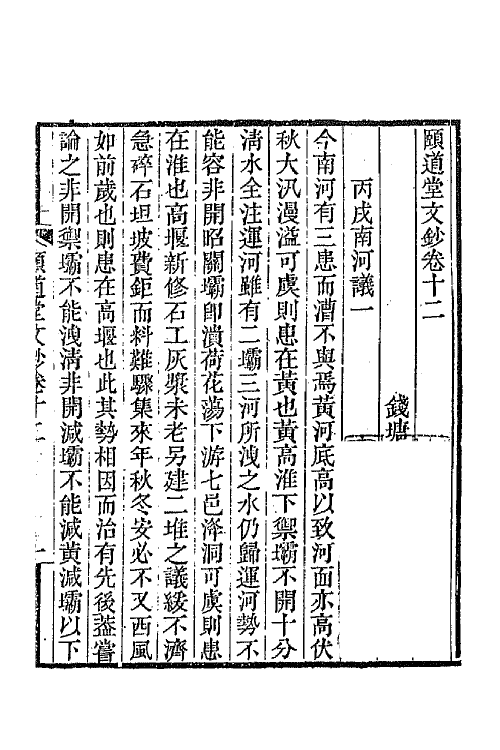 頤道堂文鈔卷十二
錢塘
丙戌南河議一
今南河有三患而漕不與焉黃河底高以致河面亦高伏
秋大汛漫溢可虞則患在黃也黃高淮下禦壩不開十分
淸水全注運河雖有二壩三河所洩之水仍歸運河勢不
能容非開昭關壩卽潰荷花蕩下游七邑洚洞可虞則患
在淮也高堰新修石工灰漿未老另建二堆之議緩不濟
急碎石坦坡費鉅而料難驟集來年秋冬安必不又西風
如前歲也則患在高堰也此其勢相因而治有先後葢嘗
論之非開禦壩不能洩淸非開減壩不能減黃減壩以下
頤道堂文鈔卷十二
一